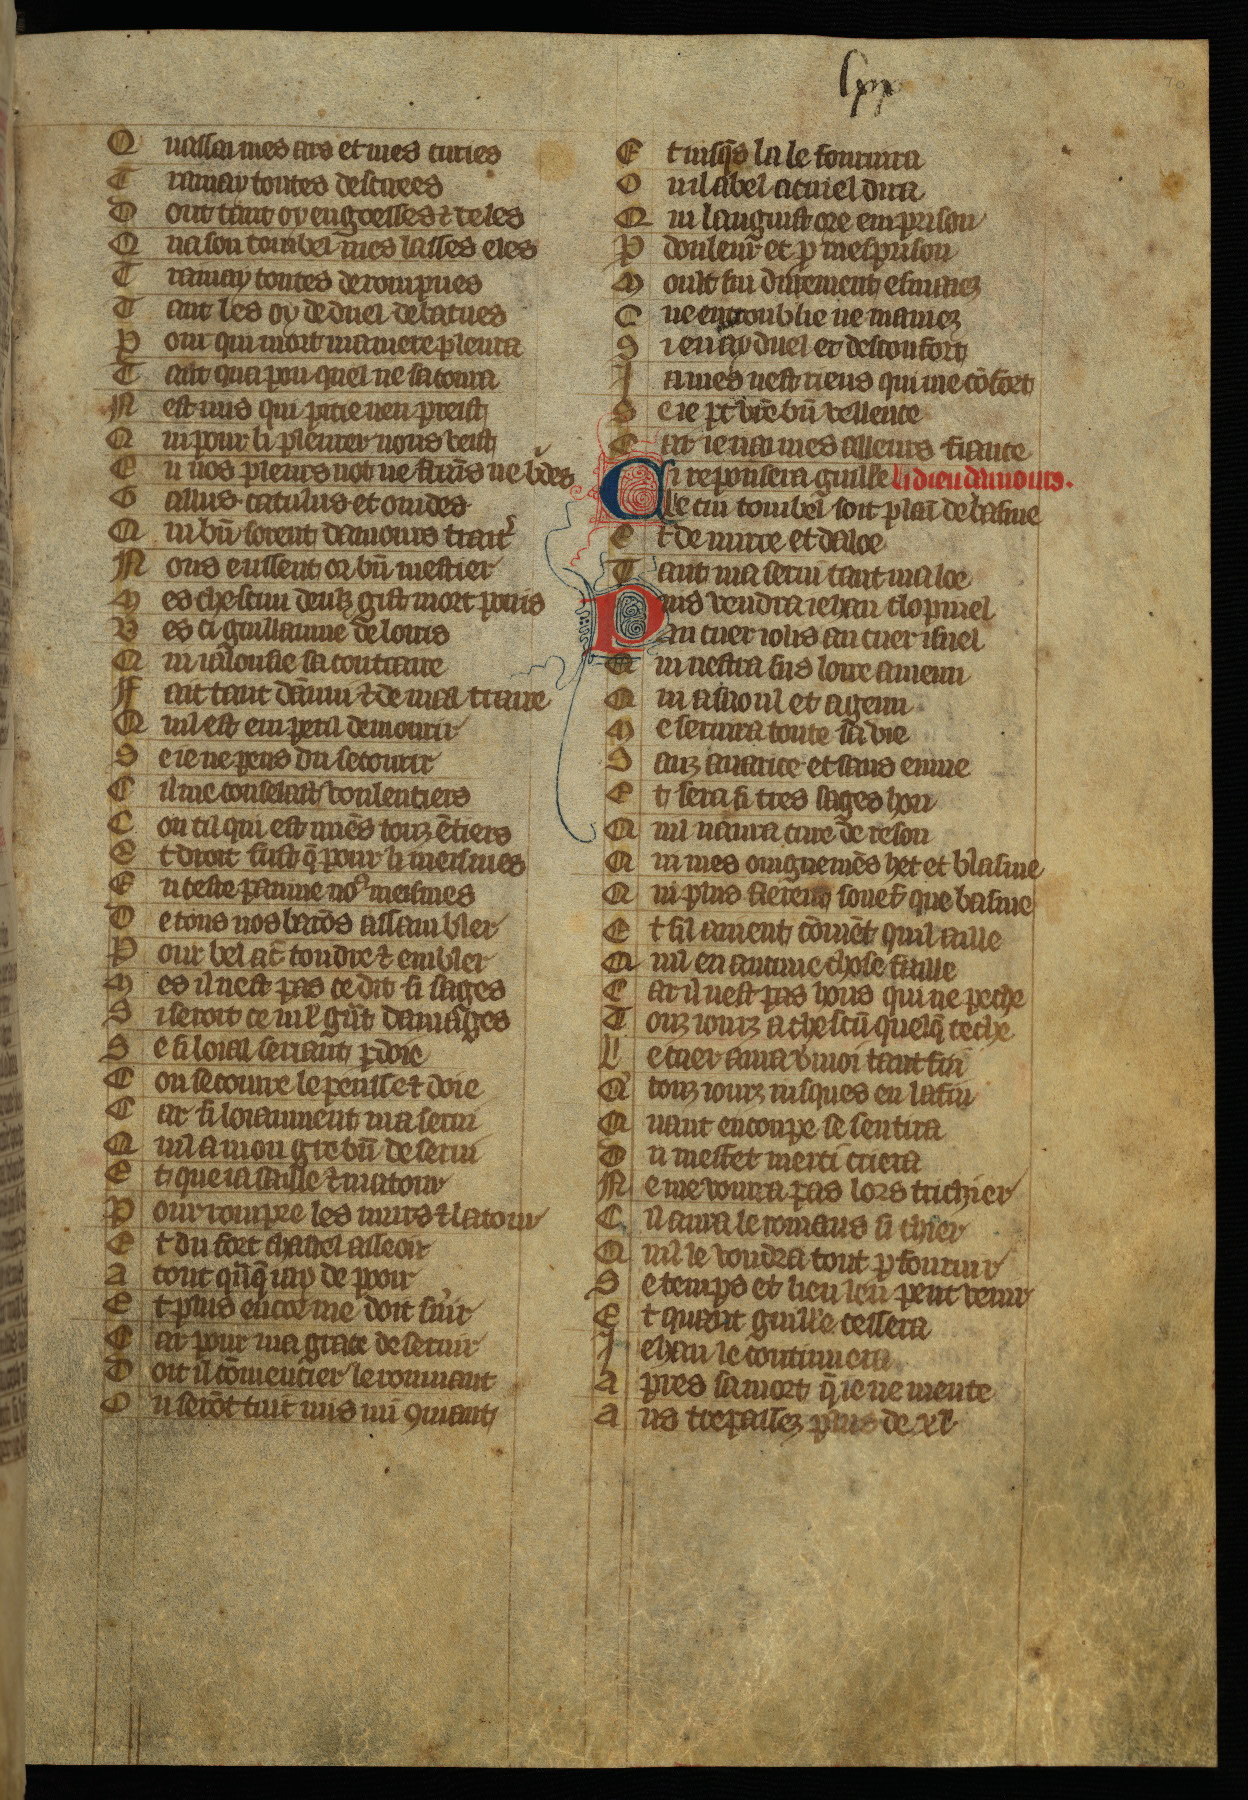 lxx
Q uassai mes ars et mes curies
T ramay toutes descirees
D ont tant oy engoesses ⁊ teles
Q ua son tombel mes lasses eles
T ramay toutes derompues
T ant les oy de duel debatues
P our qui mort ma mere ploura
T ant qua pou quel ne sacoura
N est nus qui pitie nen preist
Q ui pour li plourer nous veist
E n nos pleurs not ne frains ne brides
G allus catulus et ouides
Q ui bn̄ sorent damours traitͬ
N ous eussent or bn̄ mestier
M es chescun deulz gist mort pouris
V es ci guillaume de loris
Q ui ialousie sa contraire
F ait tant dāgui ⁊ de mal traire
Q uil est em peril de mourir
S e ie ne pens du secourir
C il me conselast voulentiers
C on cil qui est miēs touz ētiers
E t droit fust q̄ pour li meismes
E n ceste painne noꝰ meismes
D e tous nos barōs assambler
P our bel ac̄ toudre ⁊ embler
M es il nest pas ce dit si sages
S i seroit ce mlͭ gn̄t damages
S e si loial seriant ꝑdoie
C on secourre le peusse ⁊ doie
C ar si loiaument ma serui
Q uil a mon gre bn̄ deserui
E t que ia saille ⁊ matour
P our rompre les murs ⁊ la tour
E t du fort chastel asseoir
A tout qn̄q̄ iay de pooir
E t plus encor me doit suīr
C ar pour ma grace deseruir
D oit il cōmencier le rommant
O u serōt tuit mis mi ꝯmant
E t iusq̄s la le fournira
O uil a bel acuiel dira
Q ui languist ore em prison
P douleur et ꝑ mesprison
M oult sui durement esmaiez
C ne entroublie ne maiez
S i en ay duel et desconfort
J ames nest riens qui me cōfort
S e ie pert vrē bn̄ vellence
C ar ie nai mes alleurs fiance
C i reponsera guille li dieu damours.
Le cui tombel soit plain de basme
E t de mirre et daloe
T ant ma serui tant ma loe
Puis vendra iehan clopinel
Au cuer iolis au cuer isnel
Q ui nestra sus loire a meun
Q ui a saoul et a geun
M e seruira toute sa vie
S anz auarice et sans enuie
E t sera si tres sages hon
Q uil naura cure de reson
Q ui mes oingnemēs het et blasme
Q ui plus flerent souef que basme
E t sil auient cōmēt quil aille
Q uil en aucune chose faille
C ar il nest pas hons qui ne peche
T ouz iourz a chescū quelq̄ teche
L e cuer aura vs moi tant fin
Q touz iourz iusques en la fin
Q uant encoupe se sentira
D u messet merci criera
N e me voura pas lors trichier
C il aura le romans si chier
Q uil le voudra tout ꝑfournir
S e temps et lieu len peut venir
E t quant guille cessera
J ehan le continuera
A pres sa mort q̄ ie ne mente
A ns trepassez plus de xl